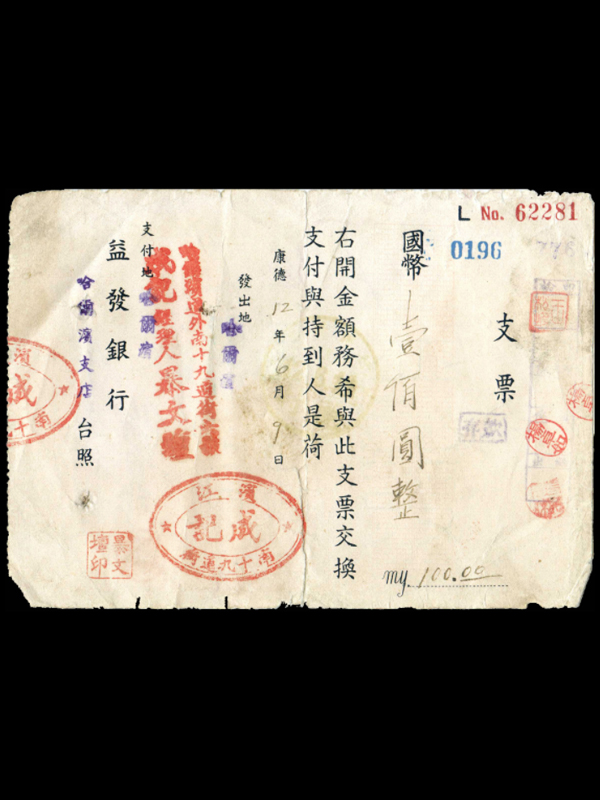 L No. 62281
0196
支票
國幣 壹佰圓整
my. 100.00
右開金額務希與此支票交換
支付與持到人是荷
康德 12 年 6 月 9 日
發出地 哈爾濱
哈爾濱道外南十九道街
成記經理人暴文壇
支付地 哈爾濱
益發銀行
哈爾濱支店 台照
濱江
成記
南十九道街
暴文壇印
濱
成
南十